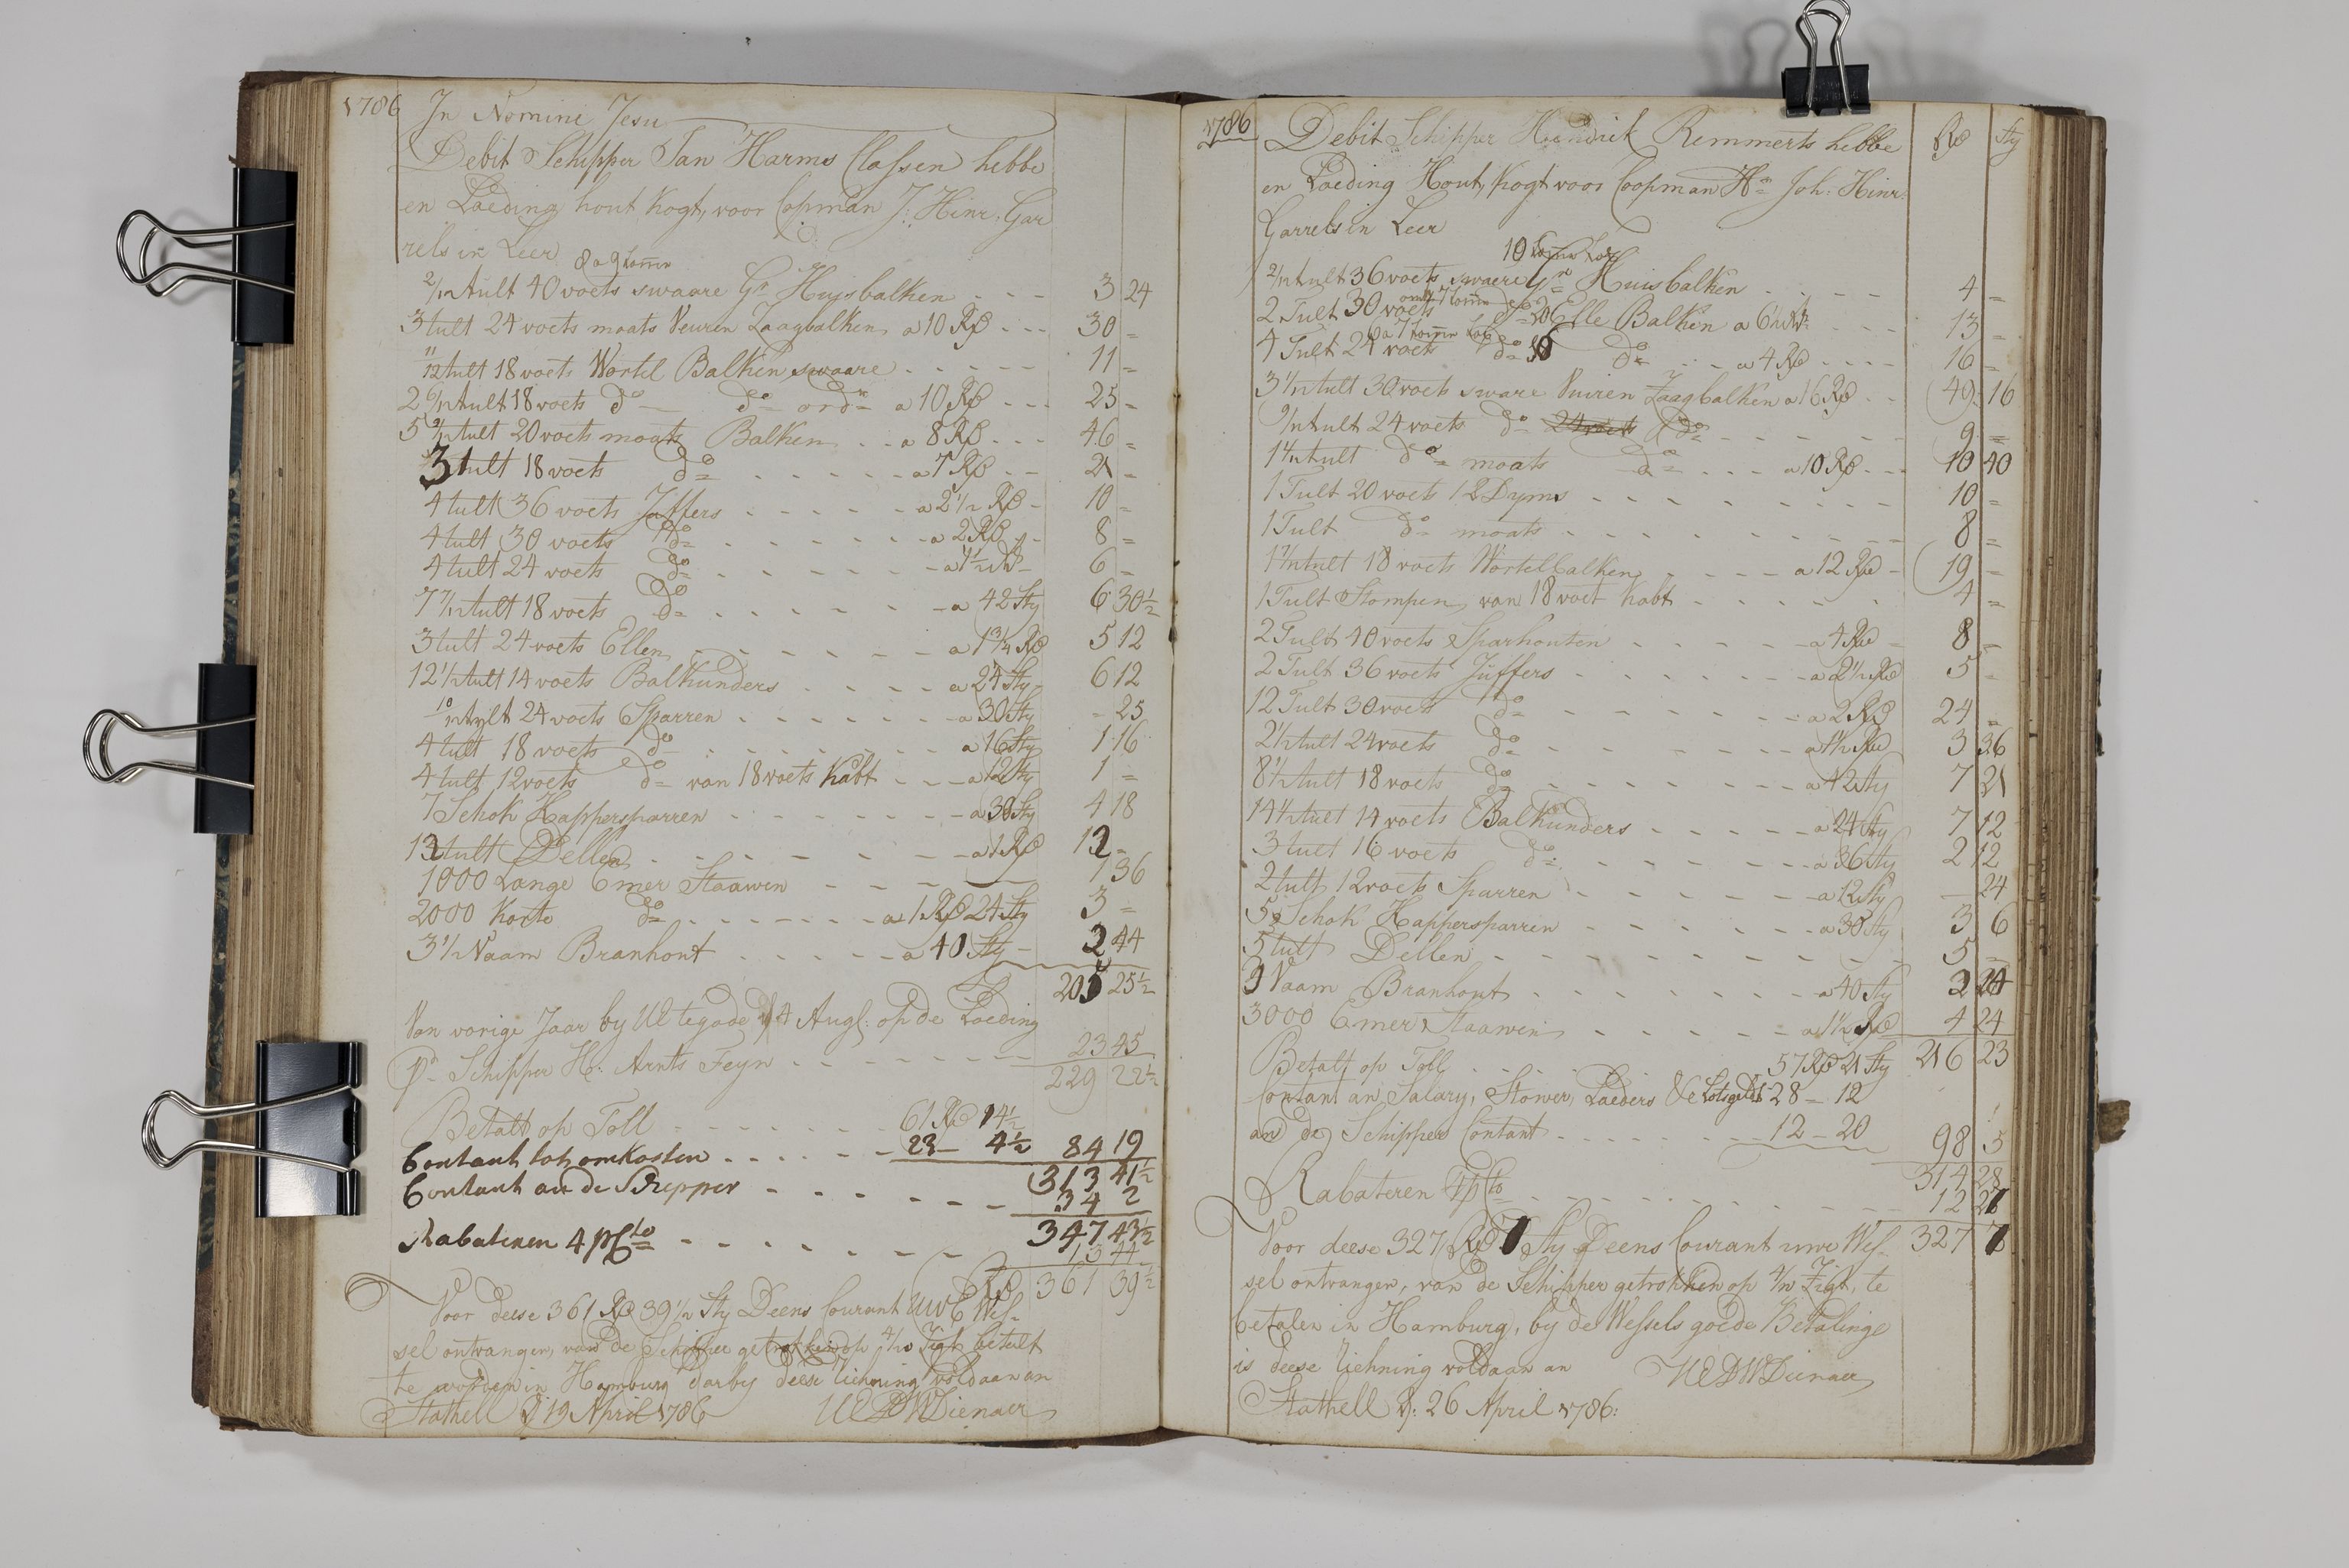 1786 In Nomine Jesu
Debit Schipper Jan Harms Classen hebbe
en Laeding hout kogt, voor Copman J: Hinr: Gar
rels in Leer 8 a 9 komm
2/12 tult 40 voets swaare Gr: Huijsbalken - - - 3 24
3 tult 24 voets moats Veuren Zaagbalken a 10 R - - - 30 =
11/12 tult 18 voets Wortel Balken swaare - - - - - 11 =
2 6/12 tult 18 voets do do ord a 10 R - - - 25 -
5 9/12 tult 20 voets moats Balken - - a 8 R - - - 46 =
3 tult 18 voets do - - - - - a 7 R - - 21 -
4 tult 36 voets Juffers - - - - - a 2 1/2 R - 10 =
4 tult 30 voets do - - - - - - a 2 R - 8 =
4 tult 24 voets do - - - - - - a 1 1/2 R - 6 -
7 7/12 tult 18 voets do - - - - - - a 42 Sty 6 30 1/2
3 tult 24 voets Ellen - - - - - - a 1 3/4 R 5 12
12 1/2 tult 14 voets Balkunders - - - - a 24 Sty - 6 12
10/12 tylt 24 voets Sparren - - - - - - a 30 Sty - 25
4 tult 18 voets do - - - - - - - a 16 Sty 1 16
4 tult 12 voets do van 18 voets kabt - - - a 12 Sty 1 =
7 Schok Happersparren - - - - - - a 30 Sty 4 18
12 tult Dellen - - - - - - - a 1 R 12 -
1000 Lange Emer Staawen - - - - - 1 36
2000 Korte do - - - - - - a 1 R 24 Sty 3 =
3 1/2 Vaam Branhout - - - - - a 40 Sty - 2 44
205 25 1/2
Van vorige Jaar by UE tegade 4 Aug: op de Laeding
pr Schipper H: Arnts Feyn - - - - - - - - 23 45
229 22 1/2
Betalt op Toll - - - - - - - 61 R 14 1/2
Contant tot omkosten - - - - - - 23 - 4 1/2 84 19
313 41 1/2
Contant an de Schepper - - - - - - - 34 2
347 43 1/2
Rabateren 4 pCto - - - - - - - - 13 44
R 361 39 1/2
Voor deese 361 R 39 1/2 Sty Deens Courant UWE Wes-
sel ontvangen, van de Schipper getrokken op 4/m Zigt, betalt
te worden in Hamburg darby deese Riehning voldaan an
Stathell D 19 April 1786 UEDWDienaer
1786 Debit Schipper Hendrick Remmerts hebbe R Sty
en Laeding Hout, kogt voor Coopman Hn Joh: Hinr:
Garrels in Leer
10 komm
2/12 tult 36 voets swaere Gr Huisbalken - - - - - 4 =
2 Tult 30 voets 7 komm do 20 Elle Balken a 6 1/2 R - - - 13 -
4 Tult 24 voets 6 a 7 komm do 16 do - - a 4 R - - - - 16 -
3 1/12 tult 30 voets sware Vuiren Zaagbalken a 16 R - - 49 16
9/12 tult 24 voets do 24 voets do - - - - - - 9 =
1 1/12 tult do moats do - - - a 10 R - - - 10 40
1 Tult 20 voets 12 Dyms - - - - - - - 10 =
1 Tult do moats - - - - - - - - 8 =
1 7/12 tult 18 voets Wortelbalken - - - - a 12 R - 19 -
1 Tult Stompen van 18 voet kabt - - - - - 4 =
2 Tult 40 voets Sparhouten - - - - - a 4 R - 8 -
2 Tult 36 voets Juffers - - - - - - a 2 1/2 R 5 -
12 Tult 30 voets do - - - - - - a 2 R 24 -
2 1/2 tult 24 voets do - - - - - a 1 1/2 R 3 36
8 1/2 tult 18 voets do - - - - - - a 42 Sty 7 21
14 1/2 tult 14 voets Balkunders - - - - - a 24 Sty 7 12
3 tult 16 voets do - - - - - - a 36 Sty 2 12
2 tult 12 voets Sparren - - - - - - a 12 Sty - 24
5 Schok Happersparren - - - - - a 30 Sty 3 6
5 tult Dellen - - - - - - - - - 5 -
3 Vaam Branhout - - - - - - - a 40 Sty 2 24
3000 Emer Staawen - - - - - a 1 1/2 R 4 24
Betalt op Toll - - - - 57 R 21 Sty 216 23
Contant an Salary, Stower, Laeders &c Lotsgeld 28 - 12
an de Schipper Contant - - - - - - 12 - 20 98 5
314 28
Rabateren 4 pCto - - - - - - - - 12 27
Voor deese 327 R 7 Sty Deens Courant uwe Wes- 327 7
sel ontvangen, van de Schipper getrokken op 4/m Zigt, te
betalen in Hamburg, by de Wessels goede Betalinge
is deese Riehning voldaan an UEDWDienaer
Stathell D: 26 April 1786: